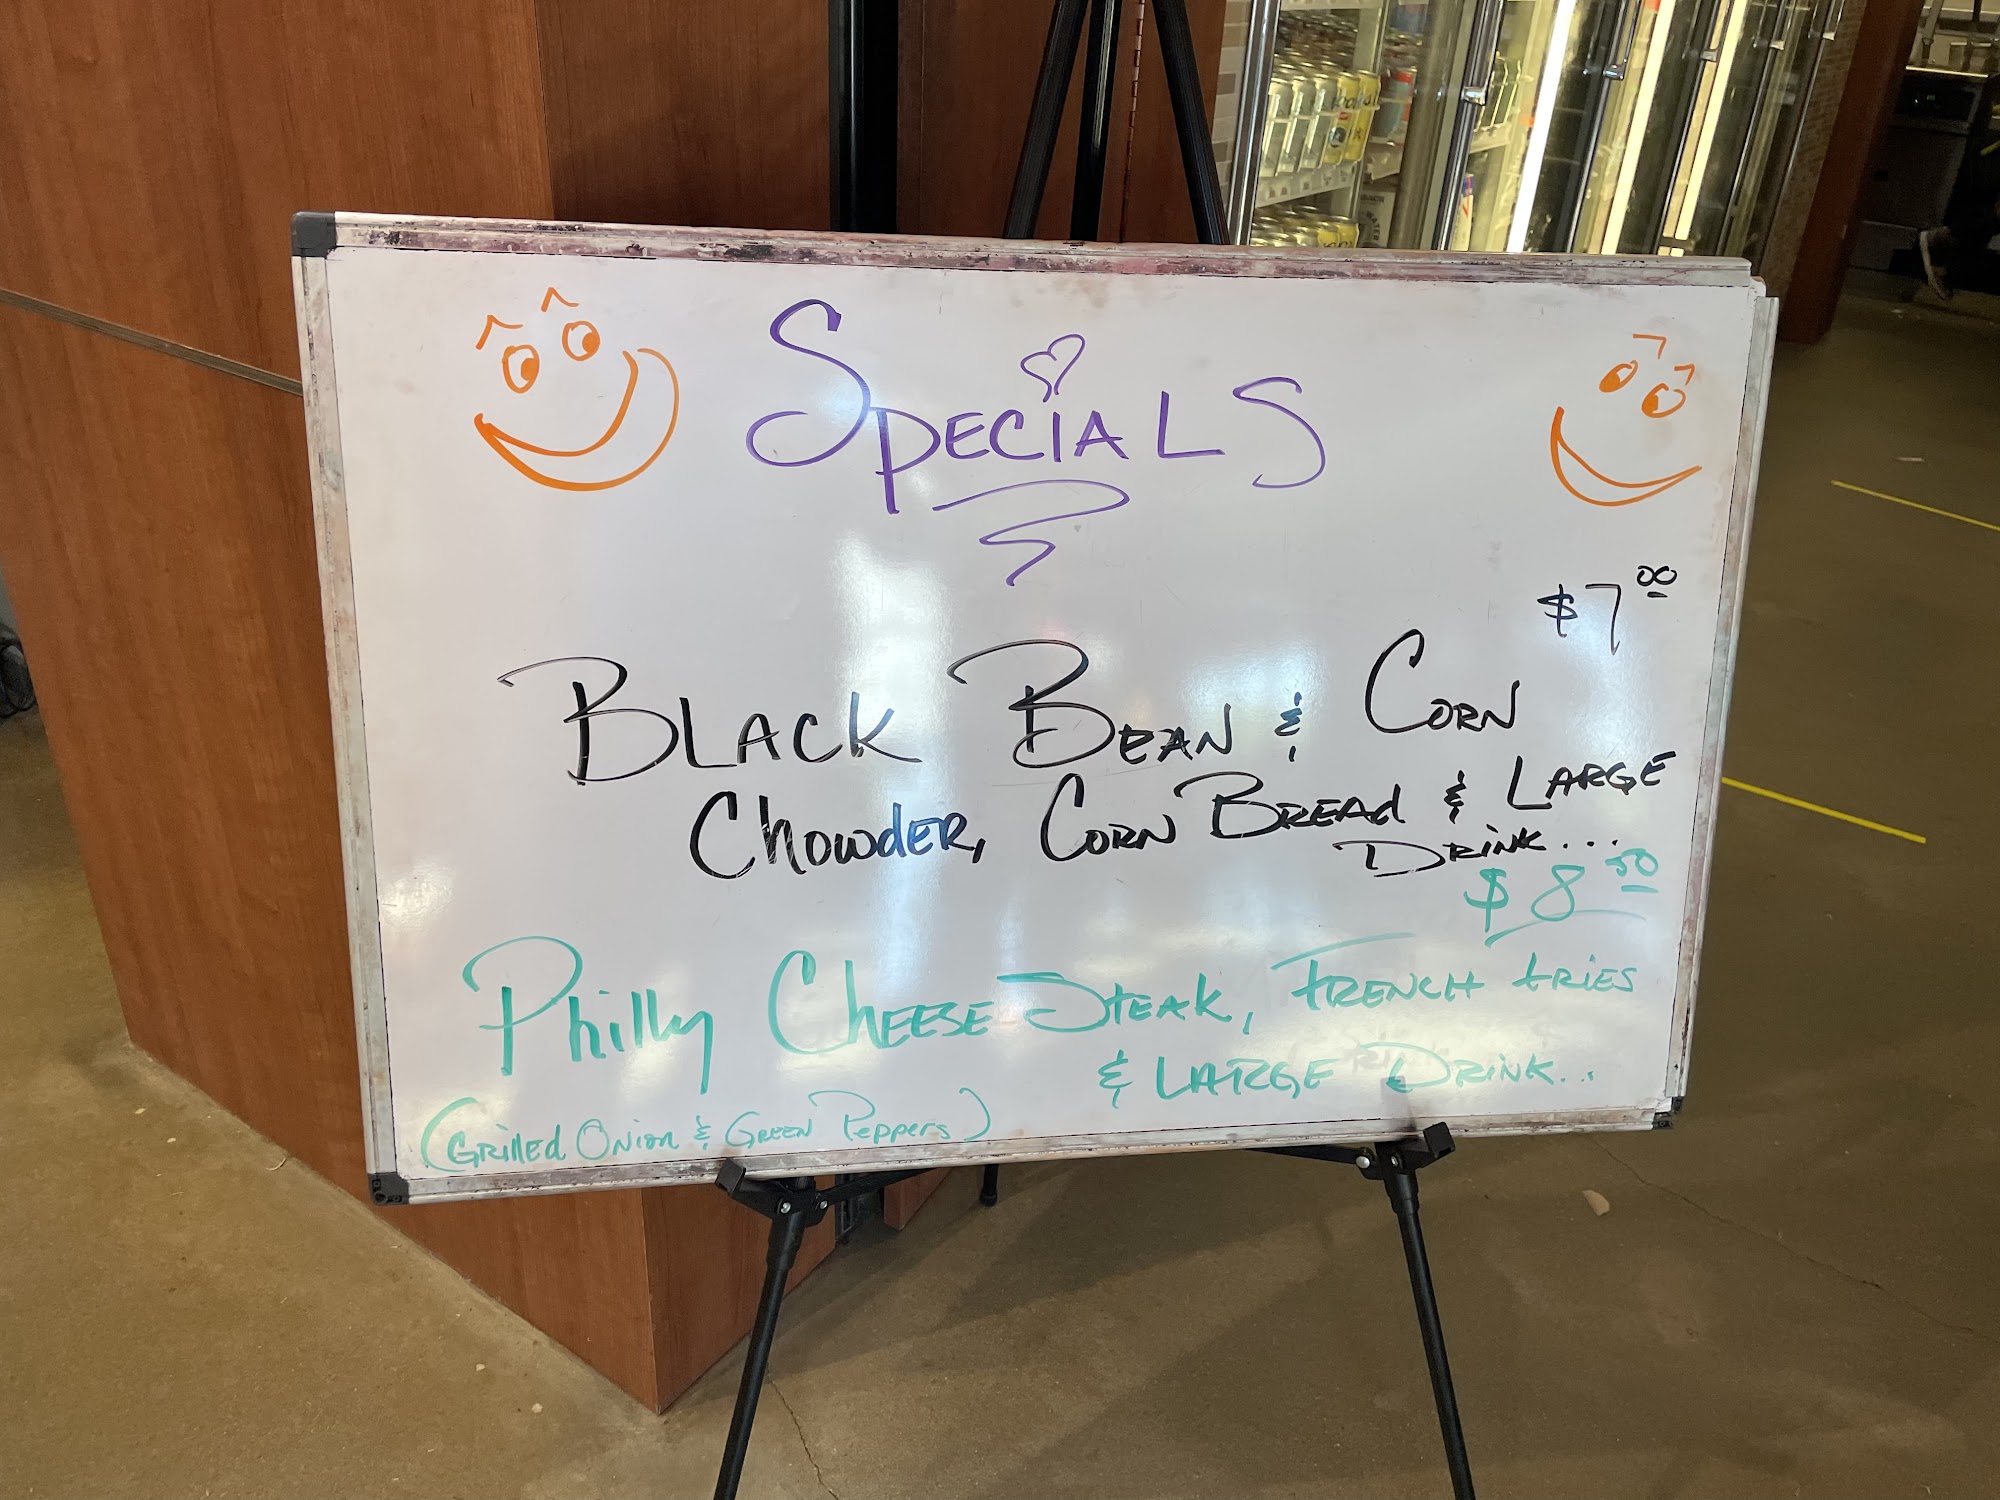 SPECIALS
$7.00
BLACK BEAN & CORN
CHOWDER, CORN BREAD & LARGE
DRINK...
$8.50
Philly CHEESE STEAK, FRENCH FRIES
& LARGE DRINK...
(GRilled ONiON & GREEN PEPPERS)